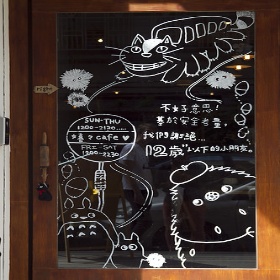 SUN-THU
1200-2130
cafe
FRI-SAT
1200-2230
不好意思!
基於安全考量,
我們謝絕...
12歲"以下的小朋友